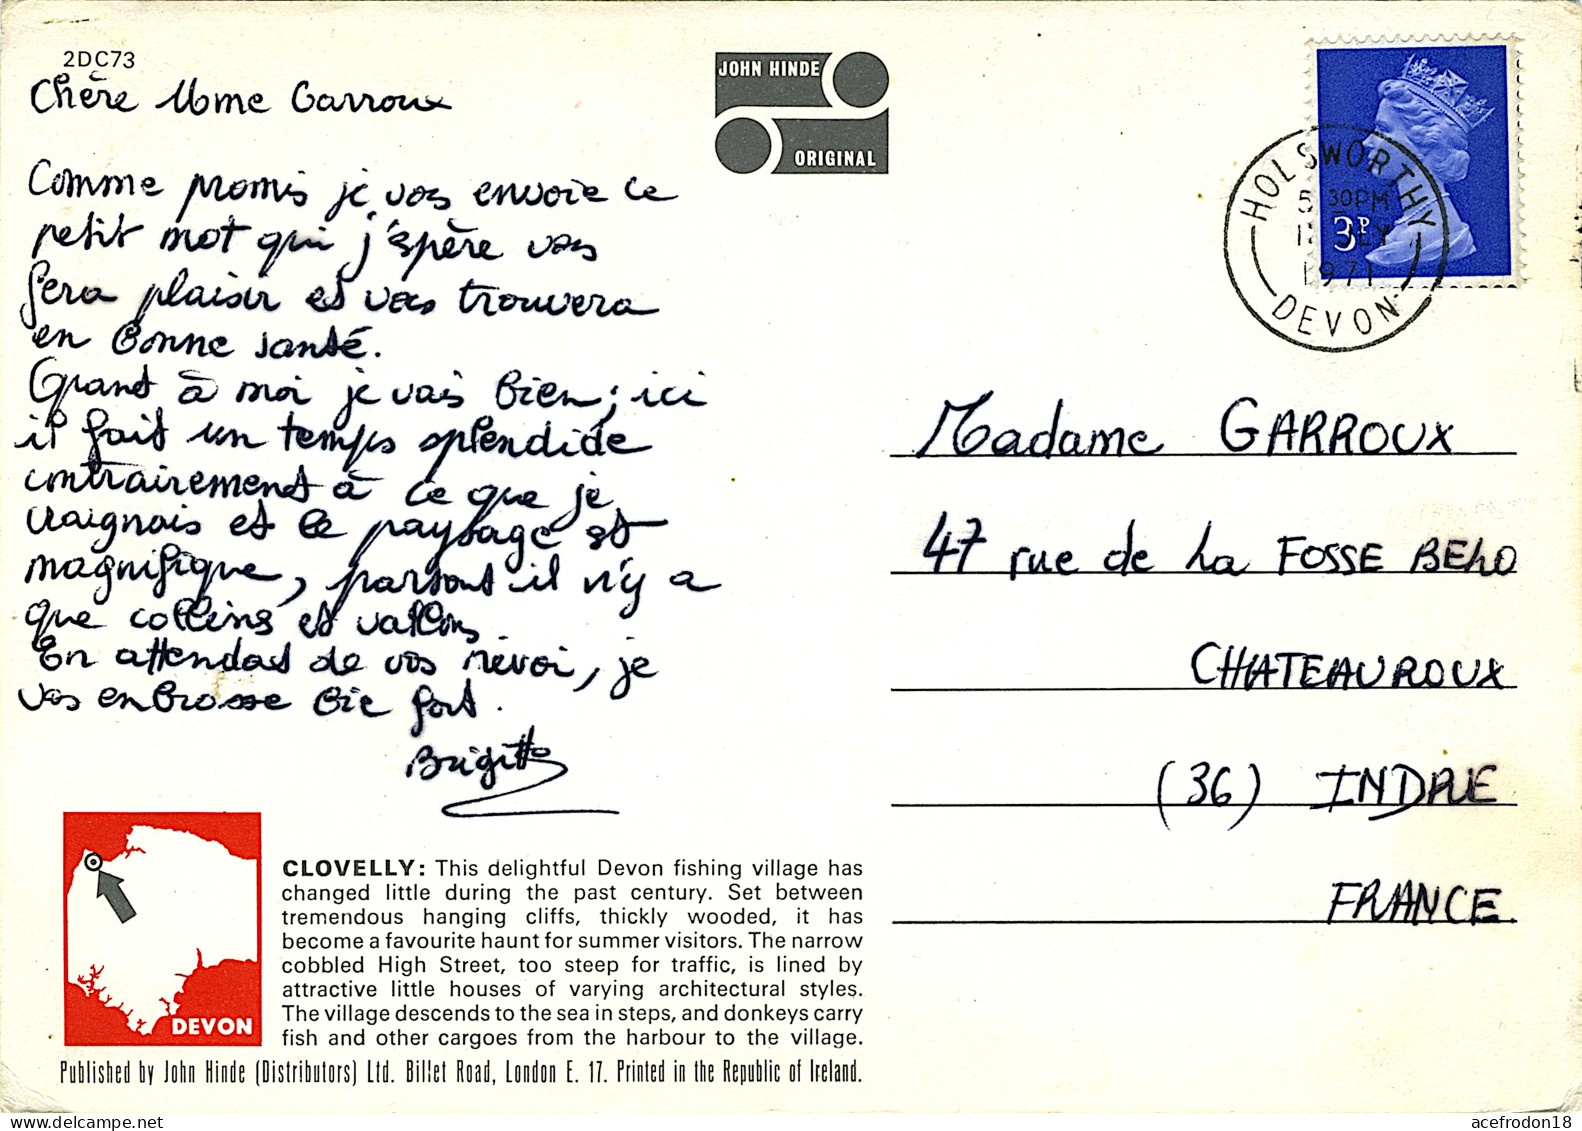 2DC73
Chère Mme Garroux
Comme promis je vous envoie ce
petit mot qui j'espère vous
fera plaisir et vous trouvera
en bonne santé.
Quant à moi je vais bien, ici
il fait un temps splendide
contrairement à ce que je
craignais et le paysage est
magnifique, partout il n'y a
que collines et vallons
En attendant de vos revoir, je
vos embrasse bie fort.
Brigitte
JOHN HINDE
ORIGINAL
HOLSWORTHY
5 30PM
3P
1971
DEVON
Madame GARROUX
47 rue de La FOSSE BELO
CHATEAUROUX
(36) INDRE
FRANCE
DEVON
CLOVELLY: This delightful Devon fishing village has
changed little during the past century. Set between
tremendous hanging cliffs, thickly wooded, it has
become a favourite haunt for summer visitors. The narrow
cobbled High Street, too steep for traffic, is lined by
attractive little houses of varying architectural styles.
The village descends to the sea in steps, and donkeys carry
fish and other cargoes from the harbour to the village.
Published by John Hinde (Distributors) Ltd. Billet Road, London E. 17. Printed in the Republic of Ireland.
acefrodon18